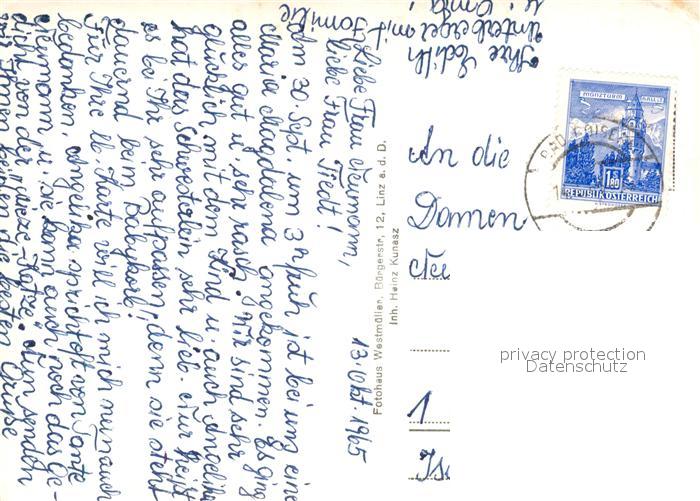 13. Okt. 1965
Liebe Frau Neumann,
liebe Frau Tiedt!
Am 30. Sept. um 3h früh ist bei uns eine
Maria Magdalena angekommen. Es ging
alles gut u. sehr rasch. Wir sind sehr
glücklich mit dem Kind u. auch Angelika
hat das Schwesterlein sehr lieb. Nur heißt
es bei ihr sehr aufpassen, denn sie steht
dauernd beim Babykorb!
Für Ihre lb. Karte will ich mich nun auch
bedanken. Angelika spricht oft von Tante
Neumann u. sie kann auch noch das Ge-
dicht von der "Mieze-Katze". Nun senden
wir Ihnen beiden die besten Grüße
Ihre Edith
Unterberger mit Familie
u. Omi!
Fotohaus Westmüller, Bürgerstr. 12, Linz a. d. D.
Inh. Heinz Kunasz
MÜNZTURM HALL I. T.
1.80
REPUBLIK ÖSTERREICH
An die
Damen
Neu
1
privacy protection
Datenschutz